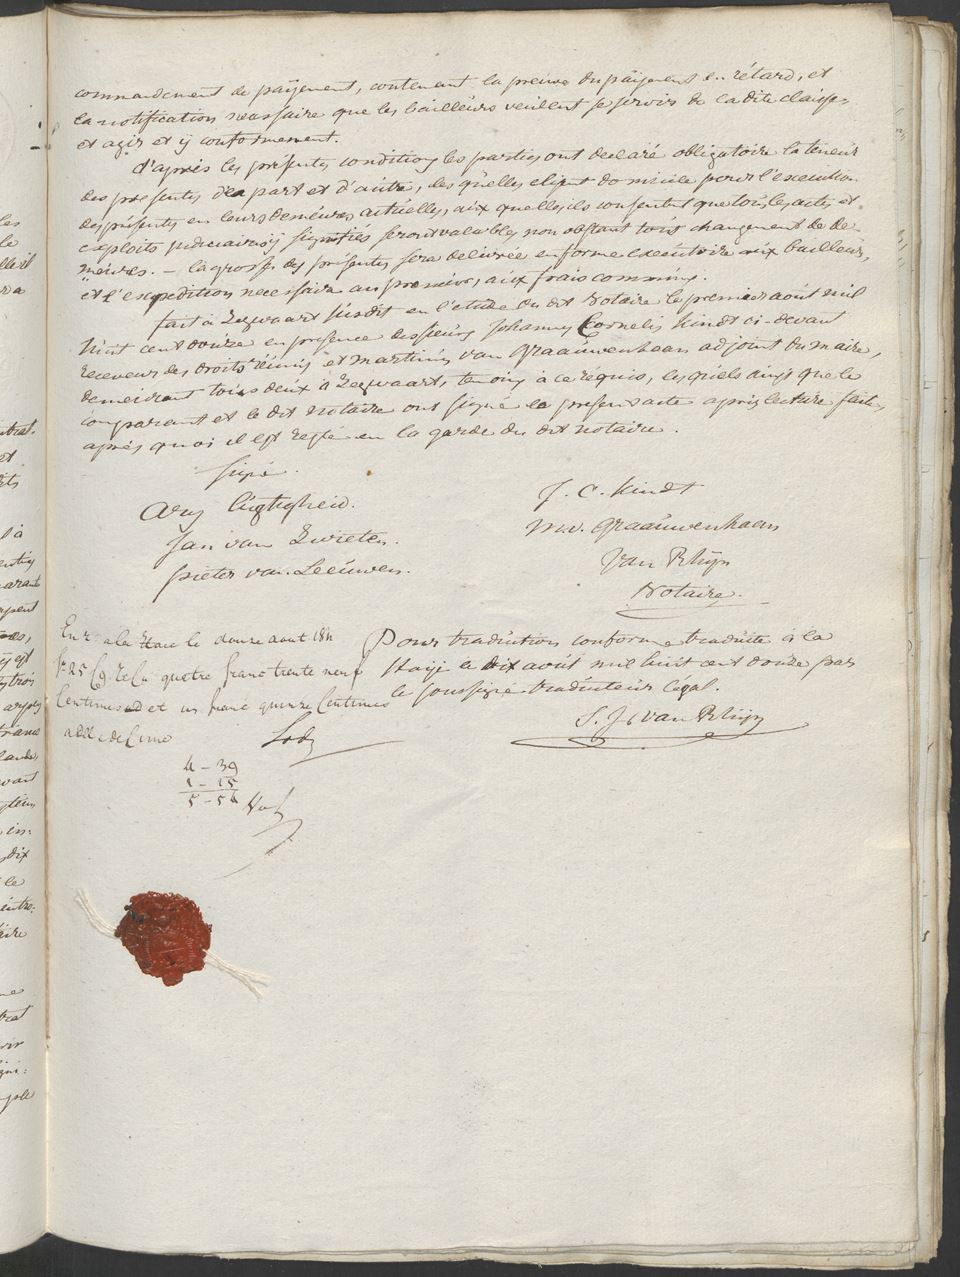 commandement de païjement, contenant la preuve du païjement en rétard, et
la notification necessaire que les bailleurs veulent se servir de la dite clause,
et agir et ij conformement.
d'après les présentes conditions les parties ont declaré obligatoire la teneur
des présentes de part et d'autre, les quelles elisent domicile pour l'execution
des présentes en leurs demeures actuelles, aux quelles ils consentent que tous les actes et
exploits judiciaires ij signifiés seront valables non obstant tout changement de de-
meures. — la grosse des présentes sera delivrée en forme executoire aux bailleurs,
et l'expedition necessaire au preneur, aux frais communs.
fait à Zegwaart susdit en l'etude du dit Notaire le premier août mil
huit cent douze en présence des sieurs Johannes Cornelis Kindt ci-devant
receveur des droits réunis et Martinus van Graauwenhaan adjoint du maire,
demeurant tous deux à Zegwaart, temoins à ce réquis, les quels ainsi que le
comparant et le dit notaire ont signé le présent acte après lecture faite,
après quoi il est resté en la garde du dit notaire.
signé.
Ary Ligtigheid.
J. C. Kindt
Jan van Zwieten.
M. v. Graauwenhaan
pieter van Leeuwen.
Van Rhijn
Notaire.
En r à la Haie le douze aout 181
f° 25 C 9. Reçu quatre francs trente neuf
Centimes et un franc quinze Centimes
addle de Cime
4 - 39
1 - 15
5 - 54
Pour traduction conforme traduite à la
Haije le dix août mil huit cent douze par
le soussigné traducteur légal.
S. J. van Rhijn